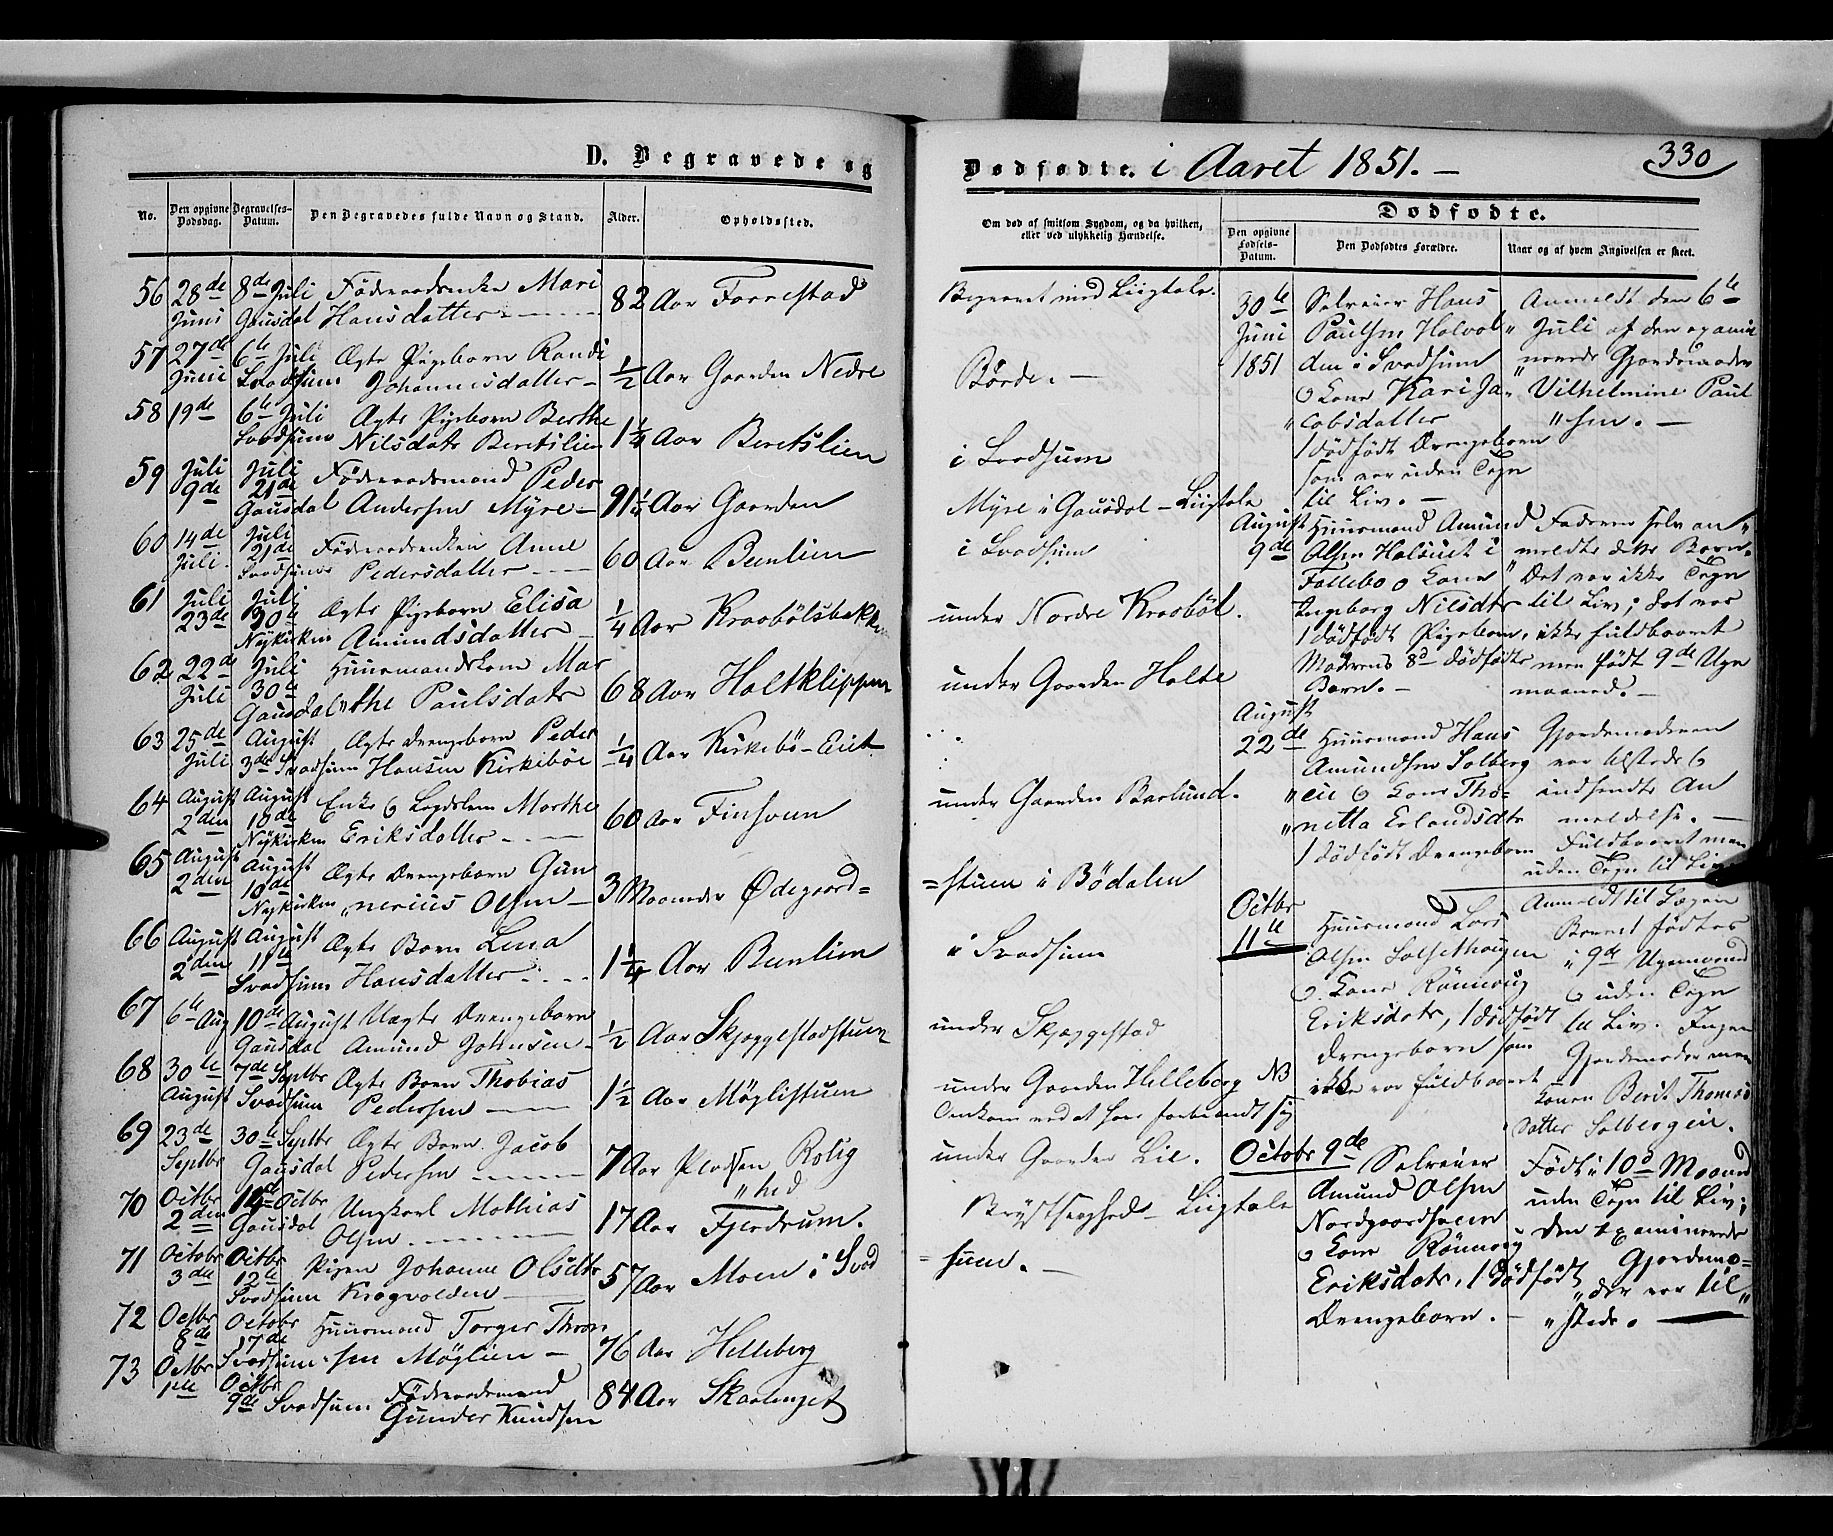 D. Begravede og
Dødfødte. i Aaret 1851. –
330
No.
Den opgivne Dødsdag.
Begravelses-Datum.
Den Begravedes fulde Navn og Stand.
Alder.
Opholdssted.
Om død af smitsom Sygdom, og da hvilken, eller ved ulykkelig Hændelse.
Dødfødte.
Den opgivne Fødsels-Datum.
Den Dødfødtes Forældre.
Naar og af hvem Angivelsen er skeet.
56 28de Juni 8de Juli Gausdal Föderaadsenke Mari Hansdatter 82 Aar Forrestad Begravet med Liigtale.
57 27de Juni 6te Juli Svadsum Ægte Pigebarn Randi Johannisdatter – 1/2 Aar Gaarden Nedre Börde. –
58 19de 6te Juli Svadsum Ægte Pigebarn Berthe Nilsdatr Beretslien 1 1/4 Aar Beretslien i Svadsum
59 Juli 9de Juli 21de Gausdal Föderaadsmand Peder Andersen Myre – 91 1/4 Aar Gaarden Myre i Gausdal – Liigtale
60 14de Juli. Juli 21de Svadsum Föderaadsenken Anne Pedersdatter 60 Aar Bunlien i Svadsum
61 Juli 23de Juli 30te Nykirken Ægte Pigebarn Elisa Amundsdatter 1/4 Aar Kraabölsbakken under Nordre Kraaböl.
62 22de Juli Juli 30te Gausdal Huusmandskone Mar„the Paulsdatr 68 Aar Holtklippen under Gaarden Holte
63 25de Juli August 3de Svadsum Ægte Drengebarn Peder Hansen Kirkeböe 1/4 Aar Kirkebö-Eiet
64 August 2den August 10de Nykirken Enke og Marthe Eriksdatter 60 Aar under Gaarden Baslund.
65 August 2den August 10de Nykirken Ægte Drengebarn Gun„nerius Olsen – 3 Maaneder Ödegaard=stuen i Bödalen
66 August 2den August 11te Svadsum Ægte Barn Lena Hansdatter 1 1/4 Aar Bunlien i Svadsum
67 6te Aug 10de August Gausdal Uægte Drengebarn Amund Johnsen – 1/2 Aar Skjæggestadstuen under Skjæggestad
68 30te August 7de Septbr Svadsum Ægte Barn Thobias Pedersen 1 1/2 Aar Möglistuen under Gaarden Helleberg NB Omkom ved at have forbrændt sig
69 23de Septbr 30te Septbr Gausdal Ægte Barn Jacob Pedersen 7 Aar Pladsen Rolig„hed under Gaarden Lie.
70 Octbr 2den Octbr Gausdal Ungkarl Mathias Olsen 17 Aar Fjerdrum. Brystsvaghed – Liigtale
71 Octobr 3die Octbr 12te Svadsum Pigen Johanne Olsdtr Krogvolden 57 Aar Moen i Svad=sum. –
72 Octbr 8de Octobr 17de Svadsum Huusmand Torger Thron-sen Möglien – 76 Aar Helleberg
73 Octbr 1ste Octbr 9de Svadsum Föderaadsmand Gunder Knudsen 84 Aar
30te Juni 1851
Selveier Hans
Paulsen Holvol„
den i Svadsum
og Kone Kari Ja„
cobsdatter
1 dödfödt Drengebarn
som var uden Tegn
til Liv. –
Anmeldt den 6te
Juli af den exami
nerede Gjordemoder
Vilhelmine Paul
„sen. –
August 9de
Huusmand Amund
Olsen i
Follebo og Kone
Ingeborg Nilsdtr
1 dödfödt Pigebarn,
Moderens 8de dödfödte
Barn. –
Faderen selv an„
meldte dette Barn.
Det var ikke Tegn
til Liv; det var
ikke fuldbaaret
men födt 9de Uge
maaned. –
August 22de
Huusmand Hans
Amundsen Solberg
„eie og Kone Tho=
„netta Erlandsdtr
1 dödfödt Drengebarn
Gjordemoderen
var tilstede og
indsendte An
meldelse. –
Fuldbaaret men
uden Tegn til Liv
Octbr 11te
Huusmand Lars
Olsen Solsethougen
og Kone Rönnoug
Eriksdatr, 1 dödfödt
Drengebarn som
ikke var fuldbaaret
Anmeldt til Lægen
Barnet födtes
i 9de Ugemaaned
og uden Tegn
til Liv. Ingen
Gjordemoder men
Konen Berit Thomas
Datter Solbergeie.
Octobr 9de
Selveier
Amund Olsen
Nordgaardsveen
og Kone Rönnoug
Eriksdatr, 1 Dödfödt
Drengebarn. –
Födt i 10de Maaned
uden Tegn til Liv;
den Examinerede
Gjordemo=
„der var til„
„stede.